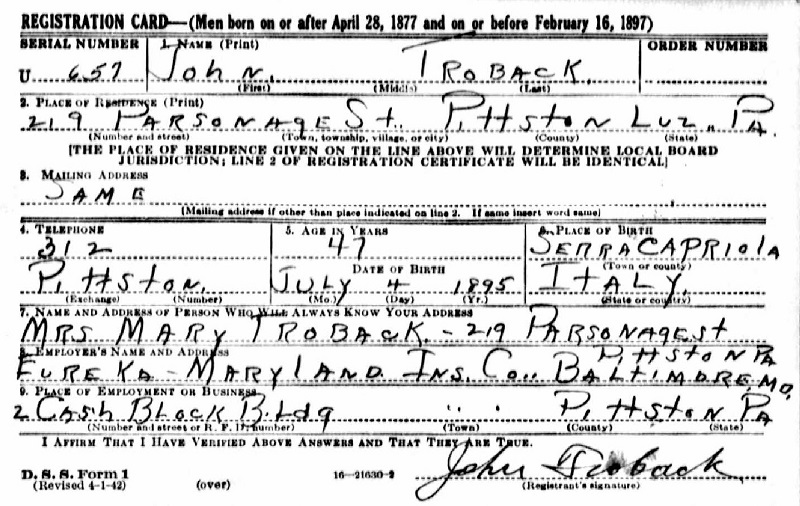 REGISTRATION CARD—(Men born on or after April 28, 1877 and on or before February 16, 1897)
SERIAL NUMBER 1. NAME (Print) ORDER NUMBER
U 657 JOHN. TROBACK.
(First) (Middle) (Last)
2. PLACE OF RESIDENCE (Print)
219 PARSONAGE St. PittSTON LUZ. PA.
(Number and street) (Town, township, village, or city) (County) (State)
[THE PLACE OF RESIDENCE GIVEN ON THE LINE ABOVE WILL DETERMINE LOCAL BOARD
JURISDICTION; LINE 2 OF REGISTRATION CERTIFICATE WILL BE IDENTICAL]
3. MAILING ADDRESS
SAME
[Mailing address if other than place indicated on line 2. If same insert word same]
4. TELEPHONE 5. AGE IN YEARS 6. PLACE OF BIRTH
312 47 SERRACAPRIOLA
DATE OF BIRTH (Town or county)
PittSTON. JULY 4 1895 ITALY
(Exchange) (Number) (Mo.) (Day) (Yr.) (State or country)
7. NAME AND ADDRESS OF PERSON WHO WILL ALWAYS KNOW YOUR ADDRESS
MRS MARY TROBACK. - 219 PARSONAGE St
PittSTON PA
8. EMPLOYER'S NAME AND ADDRESS
EUREKA - MARYLAND INS. CO. BALTIMORE, MD.
9. PLACE OF EMPLOYMENT OR BUSINESS
2 CASH BLOCK BLdg " " PittSTON PA
(Number and street or R. F. D. number) (Town) (County) (State)
I AFFIRM THAT I HAVE VERIFIED ABOVE ANSWERS AND THAT THEY ARE TRUE.
D. S. S. Form 1 16—21630-2 John Troback
(Revised 4-1-42) (over) (Registrant's signature)